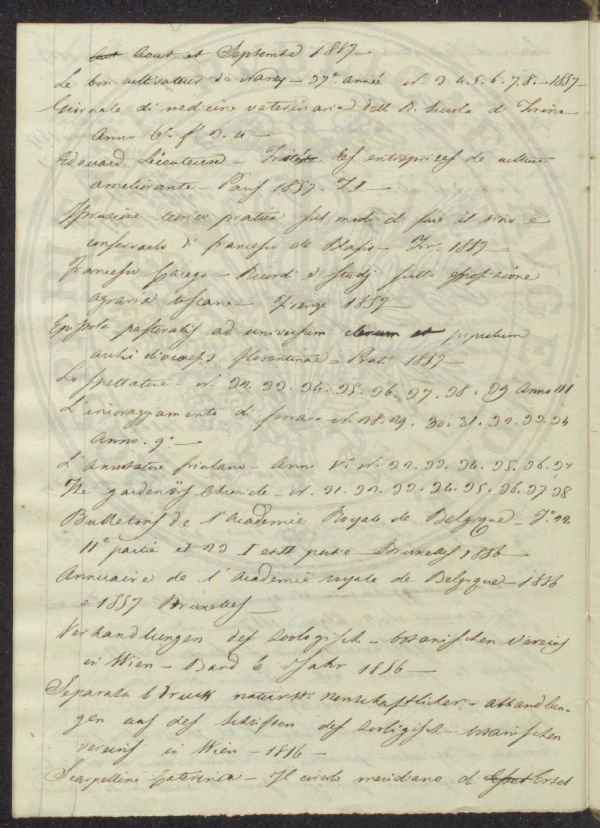 Aout et Septembre 1857
Le bon cultivateur de Nancy - 37e année N. 3. 4. 5. 6. 7. 8. - 1857
Giornale di medicina veterinaria dell R. Scuola di Torino
Anno 6. f. 3. 4 -
Edouard Lecouteux - Traité des entreprises de culture
améliorante - Paris 1857.
Istruzione teorico pratica sul modo di fare il vino e
conservarlo di Francesco de Blasis - Fir. 1857
Francesco - Ricordi e studj sulla esposizione
agraria toscana - Firenze 1857
Epistola pastoralis ad universum clerum et populum
archidiocesis florentinae - Prati 1857 -
Lo spettatore - N. 32. 33. 34. 35. 36. 37. 38. 39 Anno III
L'incoraggiamento di Ferrara N. 28. 29. 30. 31. 32. 33. 34
Anno. 9°. -
L'annotatore friulano - Anno V. N. 32. 33. 34. 35. 36. 37
The gardeners Chronicle - N. 31. 32. 33. 34. 35. 36. 37. 38
Bulletins de l'Academie Royale de Belgique - T. 22
IIe partie et 23 I et II partie - Bruxelles 1856 -
Annuaire de l'Academie royale de Belgique - 1856
e 1857 Bruxelles
Verhandlungen des zoologisch - botanischen Vereins
in Wien - Band 6 Jahr 1856 -
Separatabdruck naturwissenschaftlicher abhandlun-
gen aus des Schriften des zoologisch - botanischen
vereins in Wien - 1856 -
Scarpellini Caterina - Il circolo meridiano di Ertel